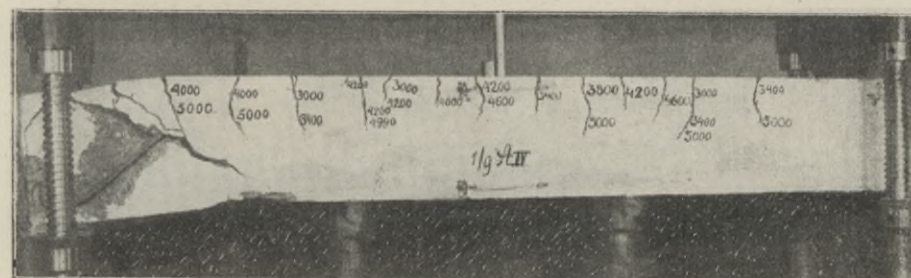 4000
5000
4000
5000
3000
3400
4200
4200
4990
3000
4200
4000
4200
4600
3400
3800
5000
4200
4600
3000
3400
5000
3400
5000